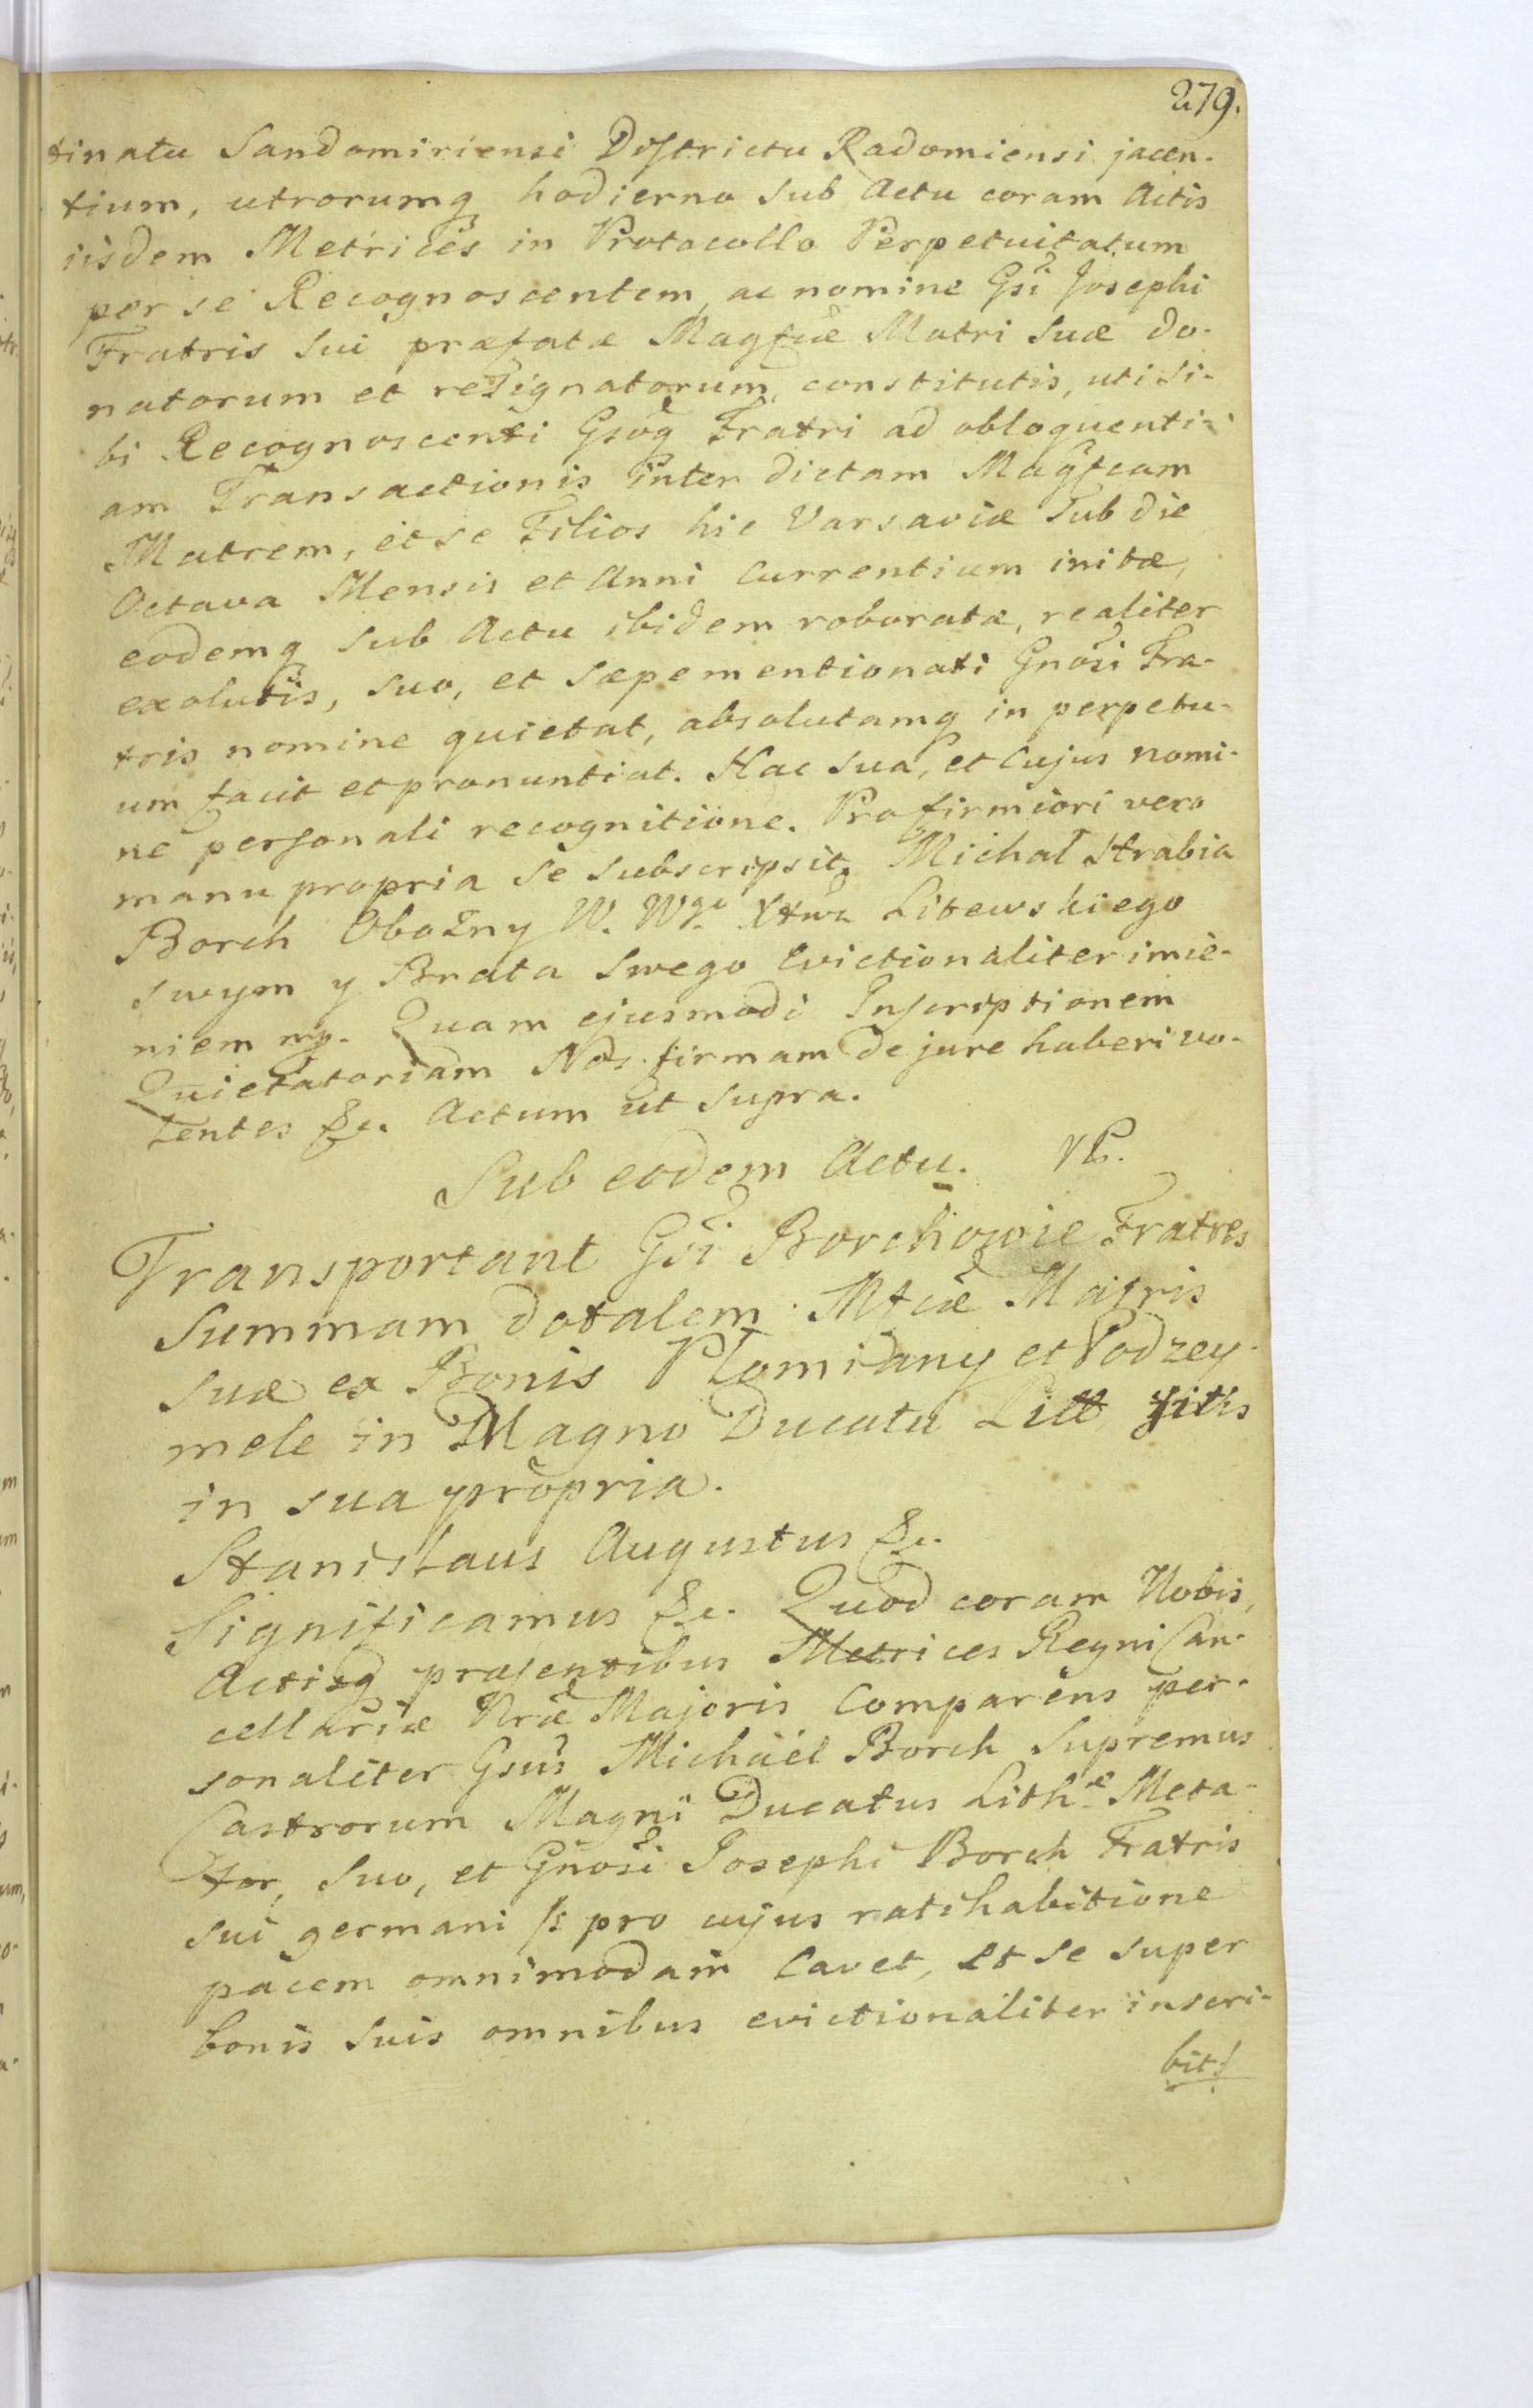 279.
tinatu Sandomiriensi Districtu Radomiensi jacen-
tium, utrorumq hodierno sub Actu coram Actis
iisdem Metrices in Protocollo Perpetuitatum
per se Recognoscentem, ac nomine Gsi Josephi
Fratris sui præfatæ Magfcæ Matri suæ do-
natorum et resignatorum, constitutis, uti si-
bi Recognoscenti Gsoq Fratri ad obloquenti-
am Transactionis inter dictam Magfcam
Matrem, et se Filios hic Varsaviæ sub die
Octava Mensis et Anni Currentium initæ,
eodemq sub Actu ibidem roboratæ, realiter
exolutis, suo, et sæpementionati Gnosi Fra-
tris nomine quietat, absolutamq in perpetu-
um facit et pronuntiat. Hac sua, et cujus nomi-
ne personali recognitione. Pro firmiori vero
manu propria se subscripsit. Michał Hrabia
Borch Obozny W. Wgo Xtwa Litewskiego
swym y Brata swego Evictionaliter imie-
niem mp. Quam ejusmodi Inscriptionem
Quietatoriam Nos firmam de jure haberi vo-
lentes &c. Actum ut supra.
Sub eodem Actu.
Transportant Gsi Borchowie Fratres
Summam dotalem Mfcæ Matris
suæ ex Bonis Płomiany et Podzey-
mele in Magno Ducatu Litt sitis
in sua propria.
Stanislaus Augustus &c.
Significamus &c. Quod coram Nobis,
Actisq præsentibus Metrices Regni Can-
cellariæ Nræ Majoris Comparens per-
sonaliter Gsus Michaël Borch Supremus
Castrorum Magni Ducatus Lithæ Meta-
tor, suo, et Gnosi Josephi Borch Fratris
sui germani /: pro cujus ratihabitione
pacem omnimodam cavet, et se super
bonis suis omnibus evictionaliter inscri-
bit:/